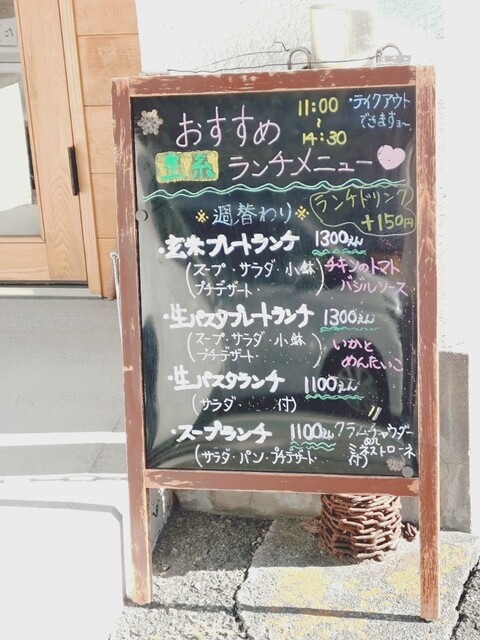 おすすめ
11:00
~
14:30
・テイクアウト
できますョ〜
ランチメニュー
※週替わり※
ランチドリンク
+150円
・玄米プレートランチ 1300えん
(スープ・サラダ・小鉢
プチデザート・ )
チキンのトマト
バジルソース
・生パスタプレートランチ 1300えん
(スープ・サラダ・小鉢
・プチデザート・ )
いかと
めんたいこ
・生パスタランチ 1100えん
(サラダ・ 付)
〃
・スープランチ 1100えん
(サラダ・パン・プチデザート・
付)
クラムチャウダー
ミネストローネ